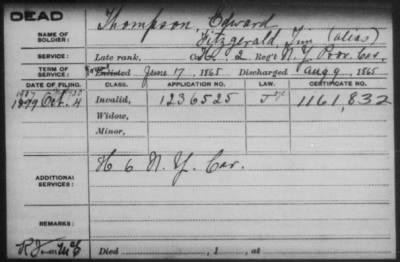 DEAD
Thompson, Edward
NAME OF SOLDIER: Fitzgerald, Tim (alias)
SERVICE: Late rank, Co. H, 2 Reg't N.Y. Prov. Cav.
TERM OF SERVICE: Enlisted June 7, 1865 Discharged Aug 9, 1865
DATE OF FILING. CLASS. APPLICATION NO. LAW. CERTIFICATE NO.
1899 Oct. 4 Invalid, 1236525 1161,832
Widow,
Minor,
ADDITIONAL SERVICES: H 6 N.Y. Cav.
REMARKS:
Died , 1 , at